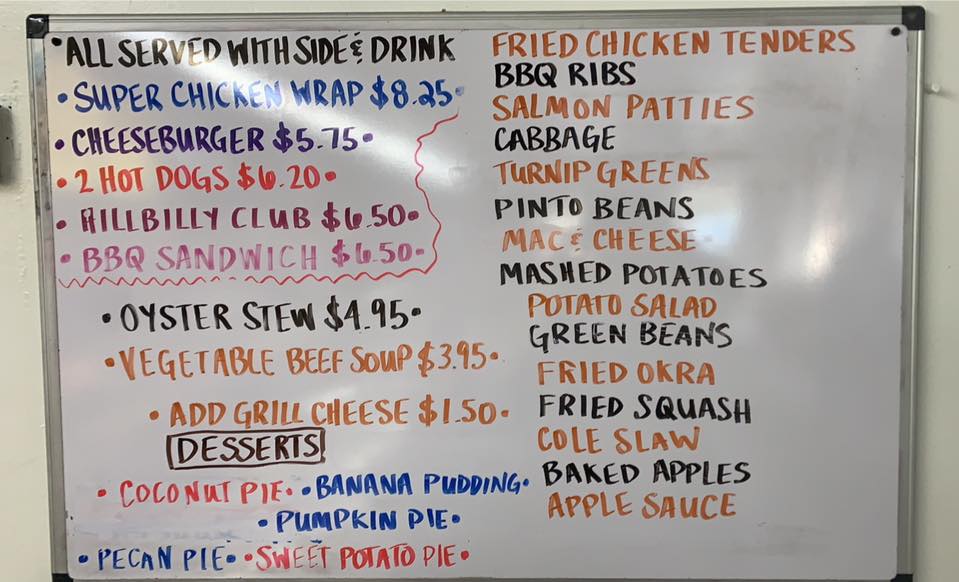 •ALL SERVED WITH SIDE & DRINK
•SUPER CHICKEN WRAP $8.25•
•CHEESEBURGER $5.75•
•2 HOT DOGS $6.20•
•HILLBILLY CLUB $6.50•
•BBQ SANDWICH $6.50•
•OYSTER STEW $4.95•
•VEGETABLE BEEF SOUP $3.95•
•ADD GRILL CHEESE $1.50•
DESSERTS
•COCONUT PIE• •BANANA PUDDING•
•PUMPKIN PIE•
•PECAN PIE• •SWEET POTATO PIE•
FRIED CHICKEN TENDERS
BBQ RIBS
SALMON PATTIES
CABBAGE
TURNIP GREENS
PINTO BEANS
MAC & CHEESE
MASHED POTATOES
POTATO SALAD
GREEN BEANS
FRIED OKRA
FRIED SQUASH
COLE SLAW
BAKED APPLES
APPLE SAUCE